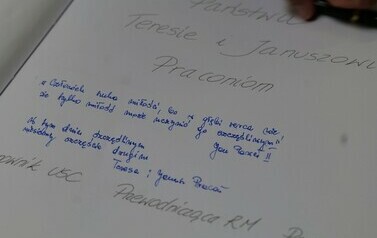 Państwu
Teresie i Januszowi
Praconiom
"Człowiek szuka miłości, bo w głębi serca wie,
że tylko miłość może uczynić go szczęśliwym"
Jan Paweł II
W tym dniu szczęśliwym
szczęścia drugim
Teresa i Janusz Pracoń
USC
Przewodnicząca RM